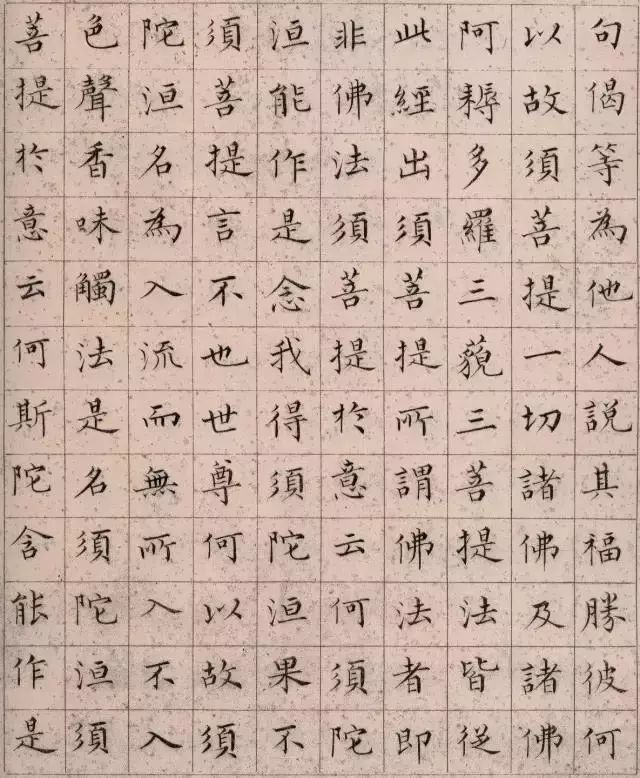 句偈等為他人說其福勝彼何
以故須菩提一切諸佛及諸佛
阿耨多羅三藐三菩提法皆從
此經出須菩提所謂佛法者即
非佛法須菩提於意云何須陀
洹能作是念我得須陀洹果不
須菩提言不也世尊何以故須
陀洹名為入流而無所入不入
色聲香味觸法是名須陀洹須
菩提於意云何斯陀含能作是